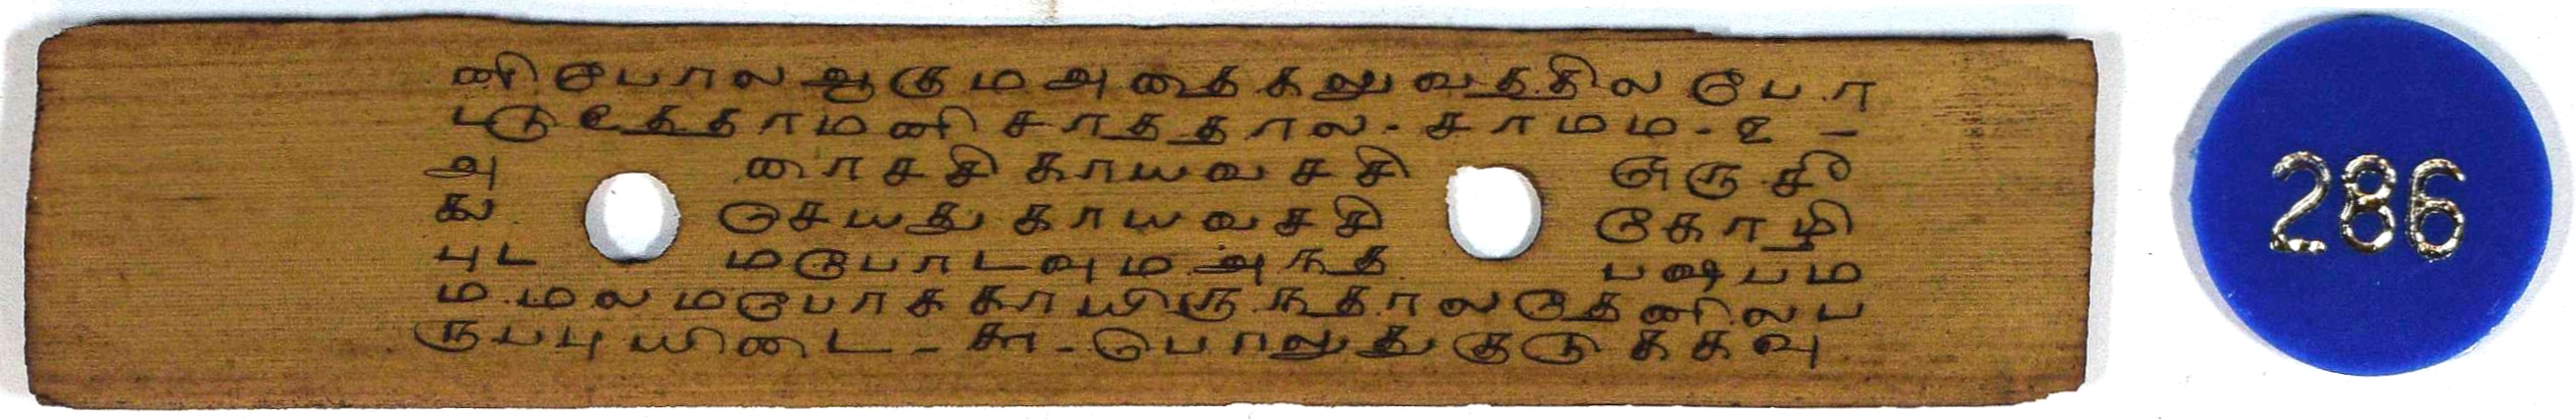 ணிபோல ஆகும அதை கலுவத்தில போ
டடு உத்தாமனி சாறத்தால - சாமம - ௨ -
அ ரைசசி காயவசசி ஒரு சீ
து செயது காயவசசி கோழி
புட மபோடவும அநத பஷபம
ம மலமபோககாயிருநதாலதேனிலப
ருபபுயிடை - ௯ - பொலுது குடுககவு
286